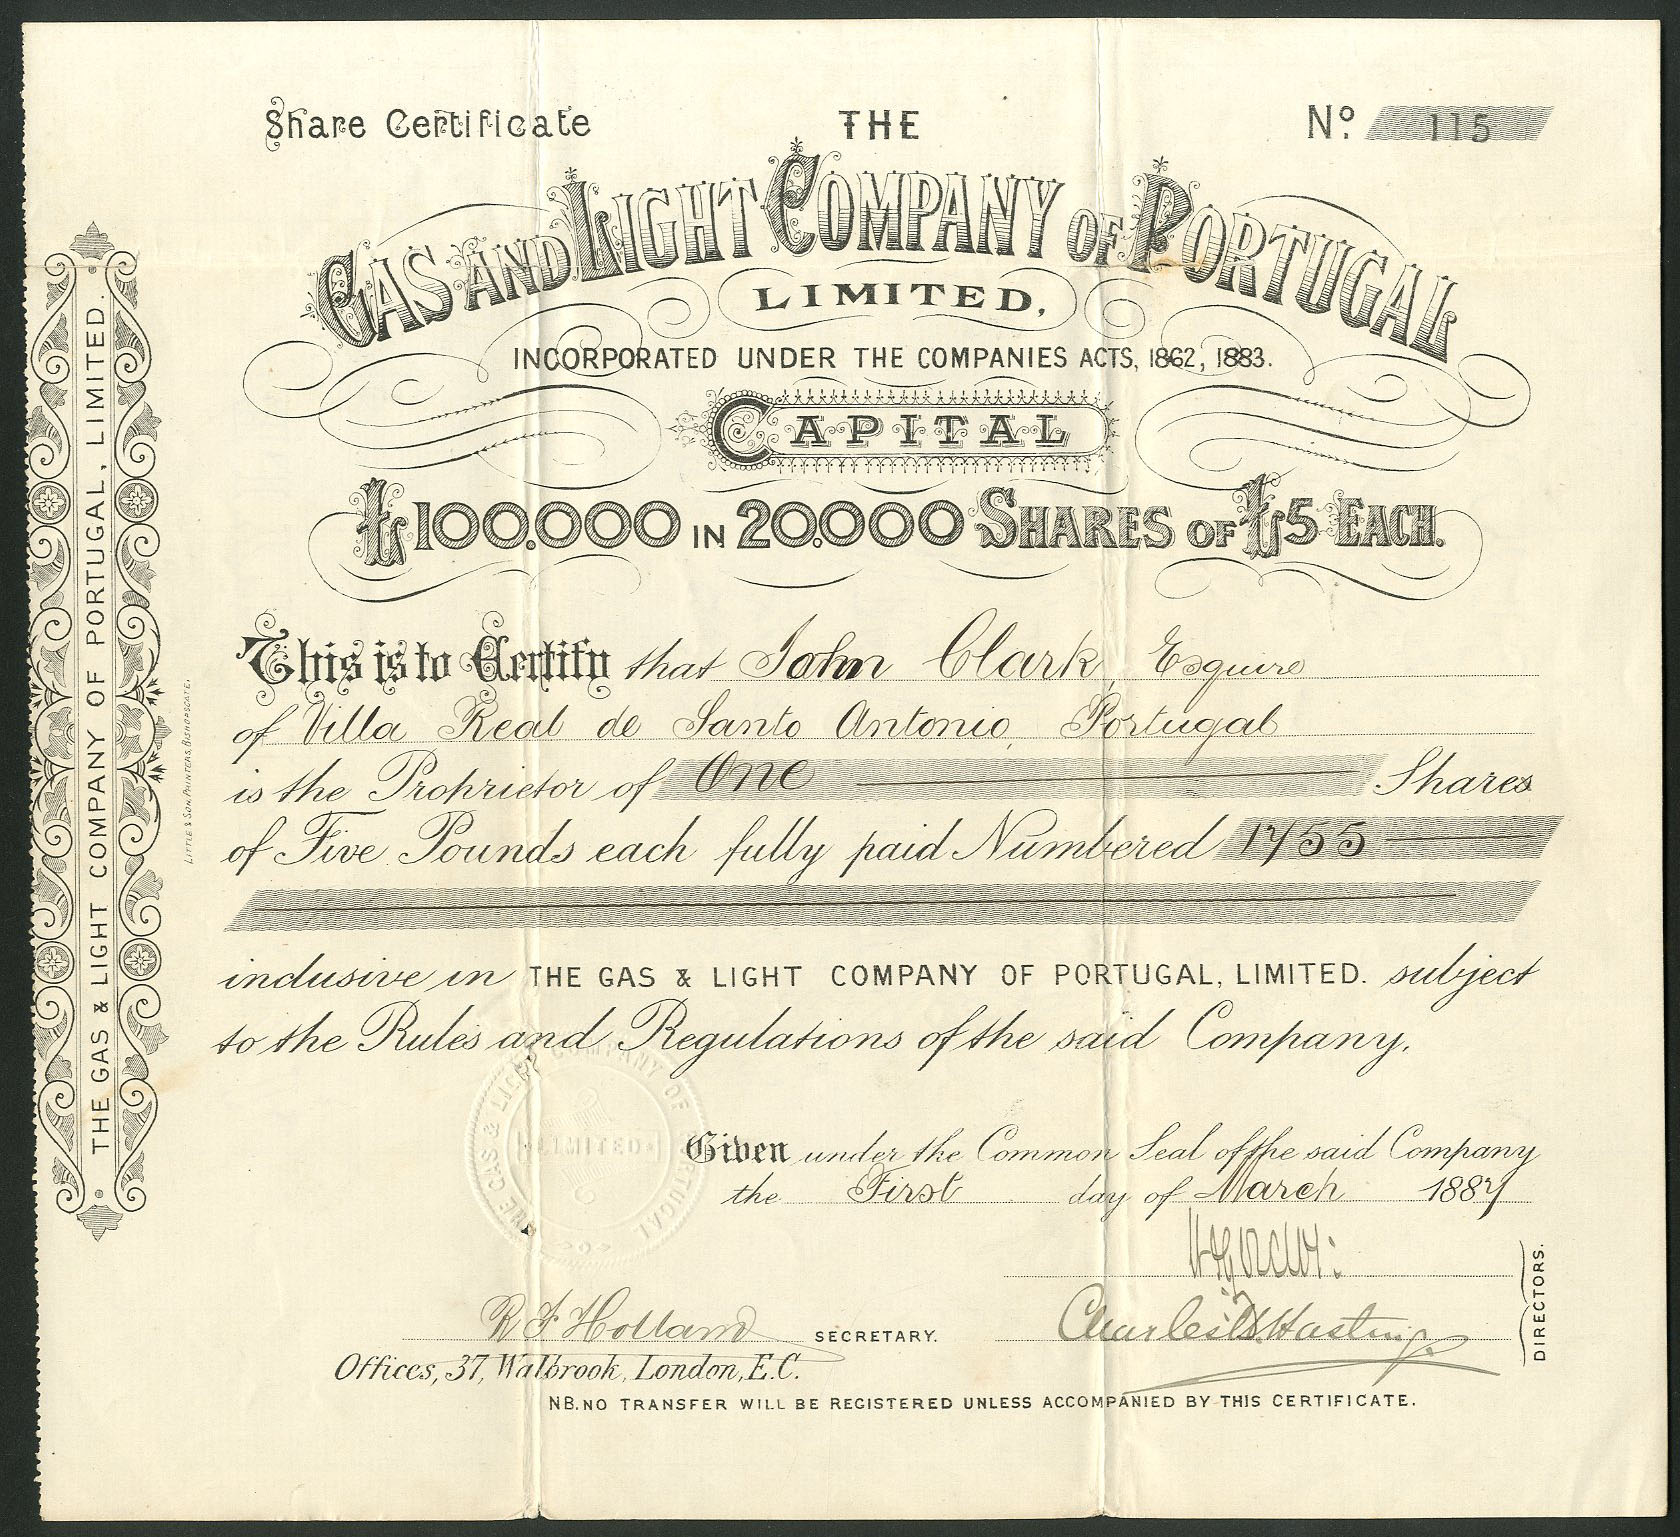 Share Certificate THE No. 115
GAS AND LIGHT COMPANY OF PORTUGAL
LIMITED,
INCORPORATED UNDER THE COMPANIES ACTS, 1862, 1883.
CAPITAL
£100,000 IN 20,000 SHARES OF £5 EACH.
This is to Certify that John Clark, Esquire
of Villa Real de Santo Antonio, Portugal
is the Proprietor of One Shares
of Five Pounds each fully paid Numbered 1755
inclusive in THE GAS & LIGHT COMPANY OF PORTUGAL, LIMITED. subject
to the Rules and Regulations of the said Company.
Given under the Common Seal of the said Company
the First day of March 1887
R F Holland SECRETARY. Charles Hastings
DIRECTORS.
Offices, 37, Walbrook, London, E.C.
NB. NO TRANSFER WILL BE REGISTERED UNLESS ACCOMPANIED BY THIS CERTIFICATE.
THE GAS & LIGHT COMPANY OF PORTUGAL, LIMITED.
LITTLE & SON, PRINTERS, BISHOPSGATE.
THE GAS & LIGHT COMPANY OF PORTUGAL
LIMITED